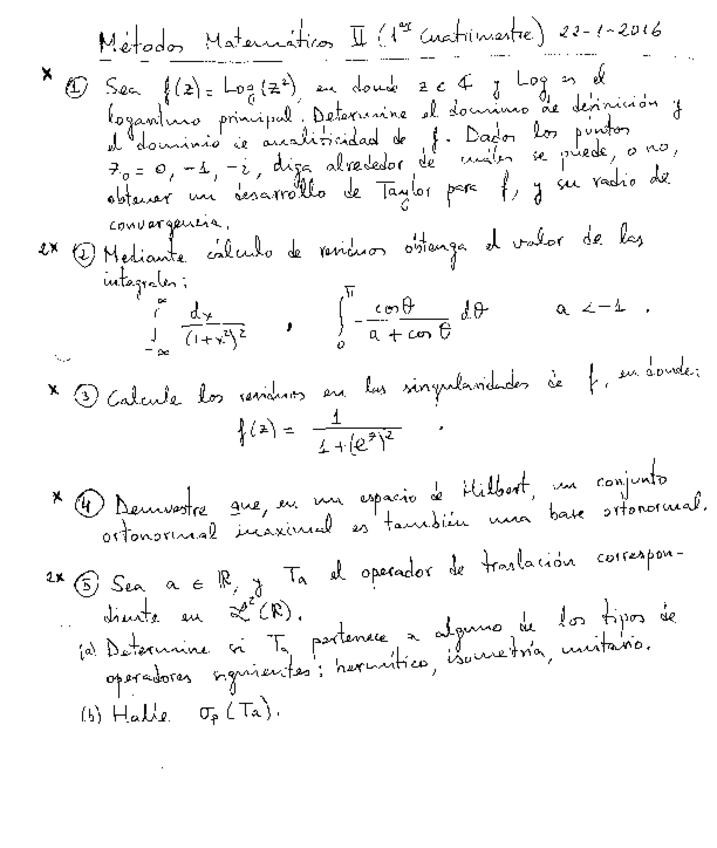 Métodos Matemáticos II (1er Cuatrimestre) 22-1-2016
x ① Sea f(z) = Log(z²), en donde z ∈ ℂ y Log es el
logaritmo principal. Determine el dominio de definición y
el dominio de analiticidad de f. Dados los puntos
z₀ = 0, -1, -i, diga alrededor de cuáles se puede, o no,
obtener un desarrollo de Taylor para f, y su radio de
convergencia.
2x ② Mediante cálculo de residuos obtenga el valor de las
integrales:
∫_{-∞}^{∞} dx/(1+x²)² , ∫_0^π - cosθ/(a + cosθ) dθ a < -1 .
x ③ Calcule los residuos en las singularidades de f, en donde:
f(z) = 1/(1+(e^z)²) .
x ④ Demuestre que, en un espacio de Hilbert, un conjunto
ortonormal maximal es también una base ortonormal.
2x ⑤ Sea a ∈ ℝ, y Ta el operador de traslación correspon-
diente en ℒ²(ℝ).
(a) Determine si Ta pertenece a alguno de los tipos de
operadores siguientes: hermítico, isometría, unitario.
(b) Halle σp(Ta).